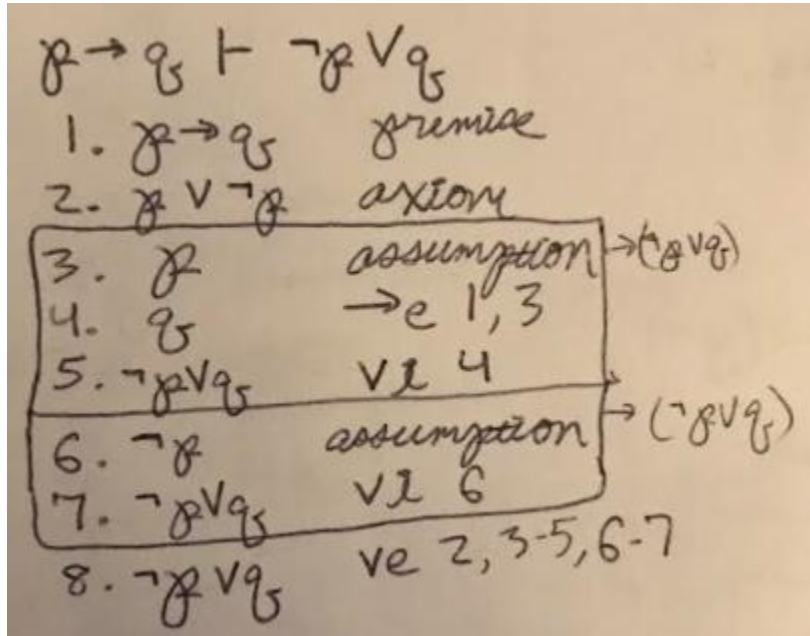 p → q ⊢ ¬p ∨ q
1. p → q premise
2. p ∨ ¬p axiom
3. p assumption → (¬p ∨ q)
4. q →e 1, 3
5. ¬p ∨ q ∨i 4
6. ¬p assumption → (¬p ∨ q)
7. ¬p ∨ q ∨i 6
8. ¬p ∨ q ∨e 2, 3-5, 6-7